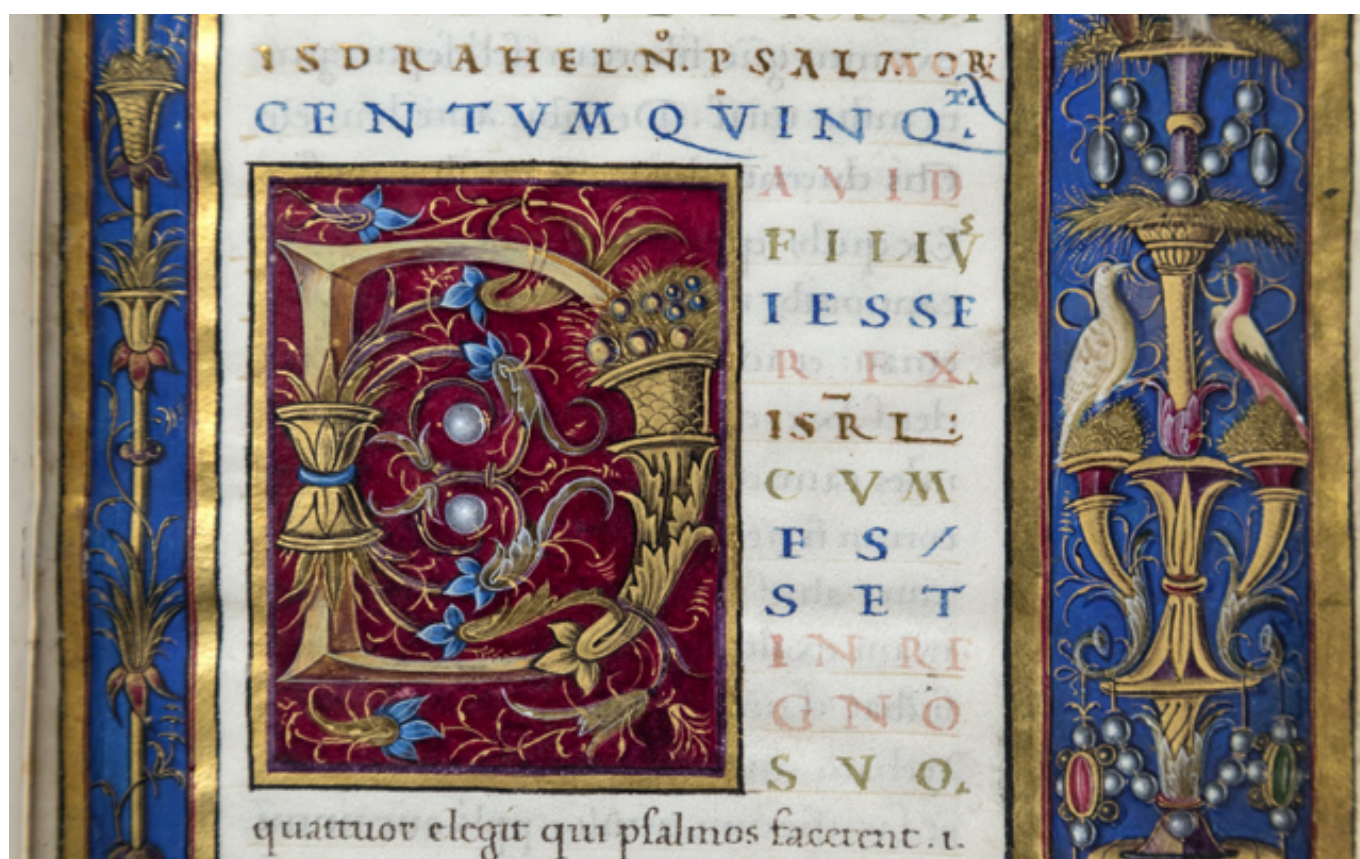 ISDRAHEL.N̊.PSALMOR
CENTVM QVINQ.TA
DAVID
FILIVS
IESSE
REX.
ISR̄L:
CVM
ES/
SET
IN RE
GNO
SVO.
quattuor elegit qui psalmos facerent .i.